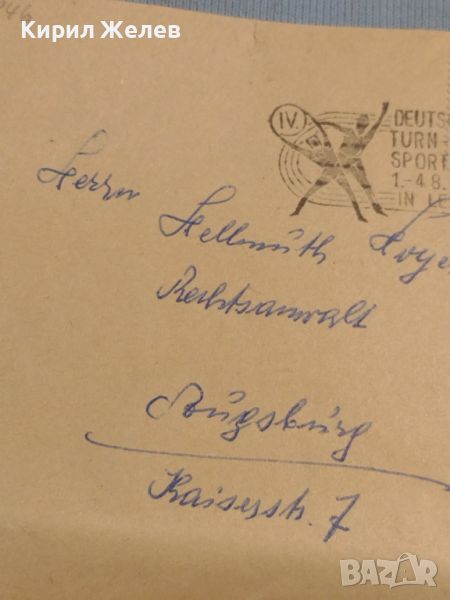 Кирил Желев
IV.
DEUTS
TURN-
SPORT
1.-4 8.
IN LE
Herrn
Hellmuth Hoye
Rechtsanwalt
Augsburg
Kaiserstr. 7
BAZAR